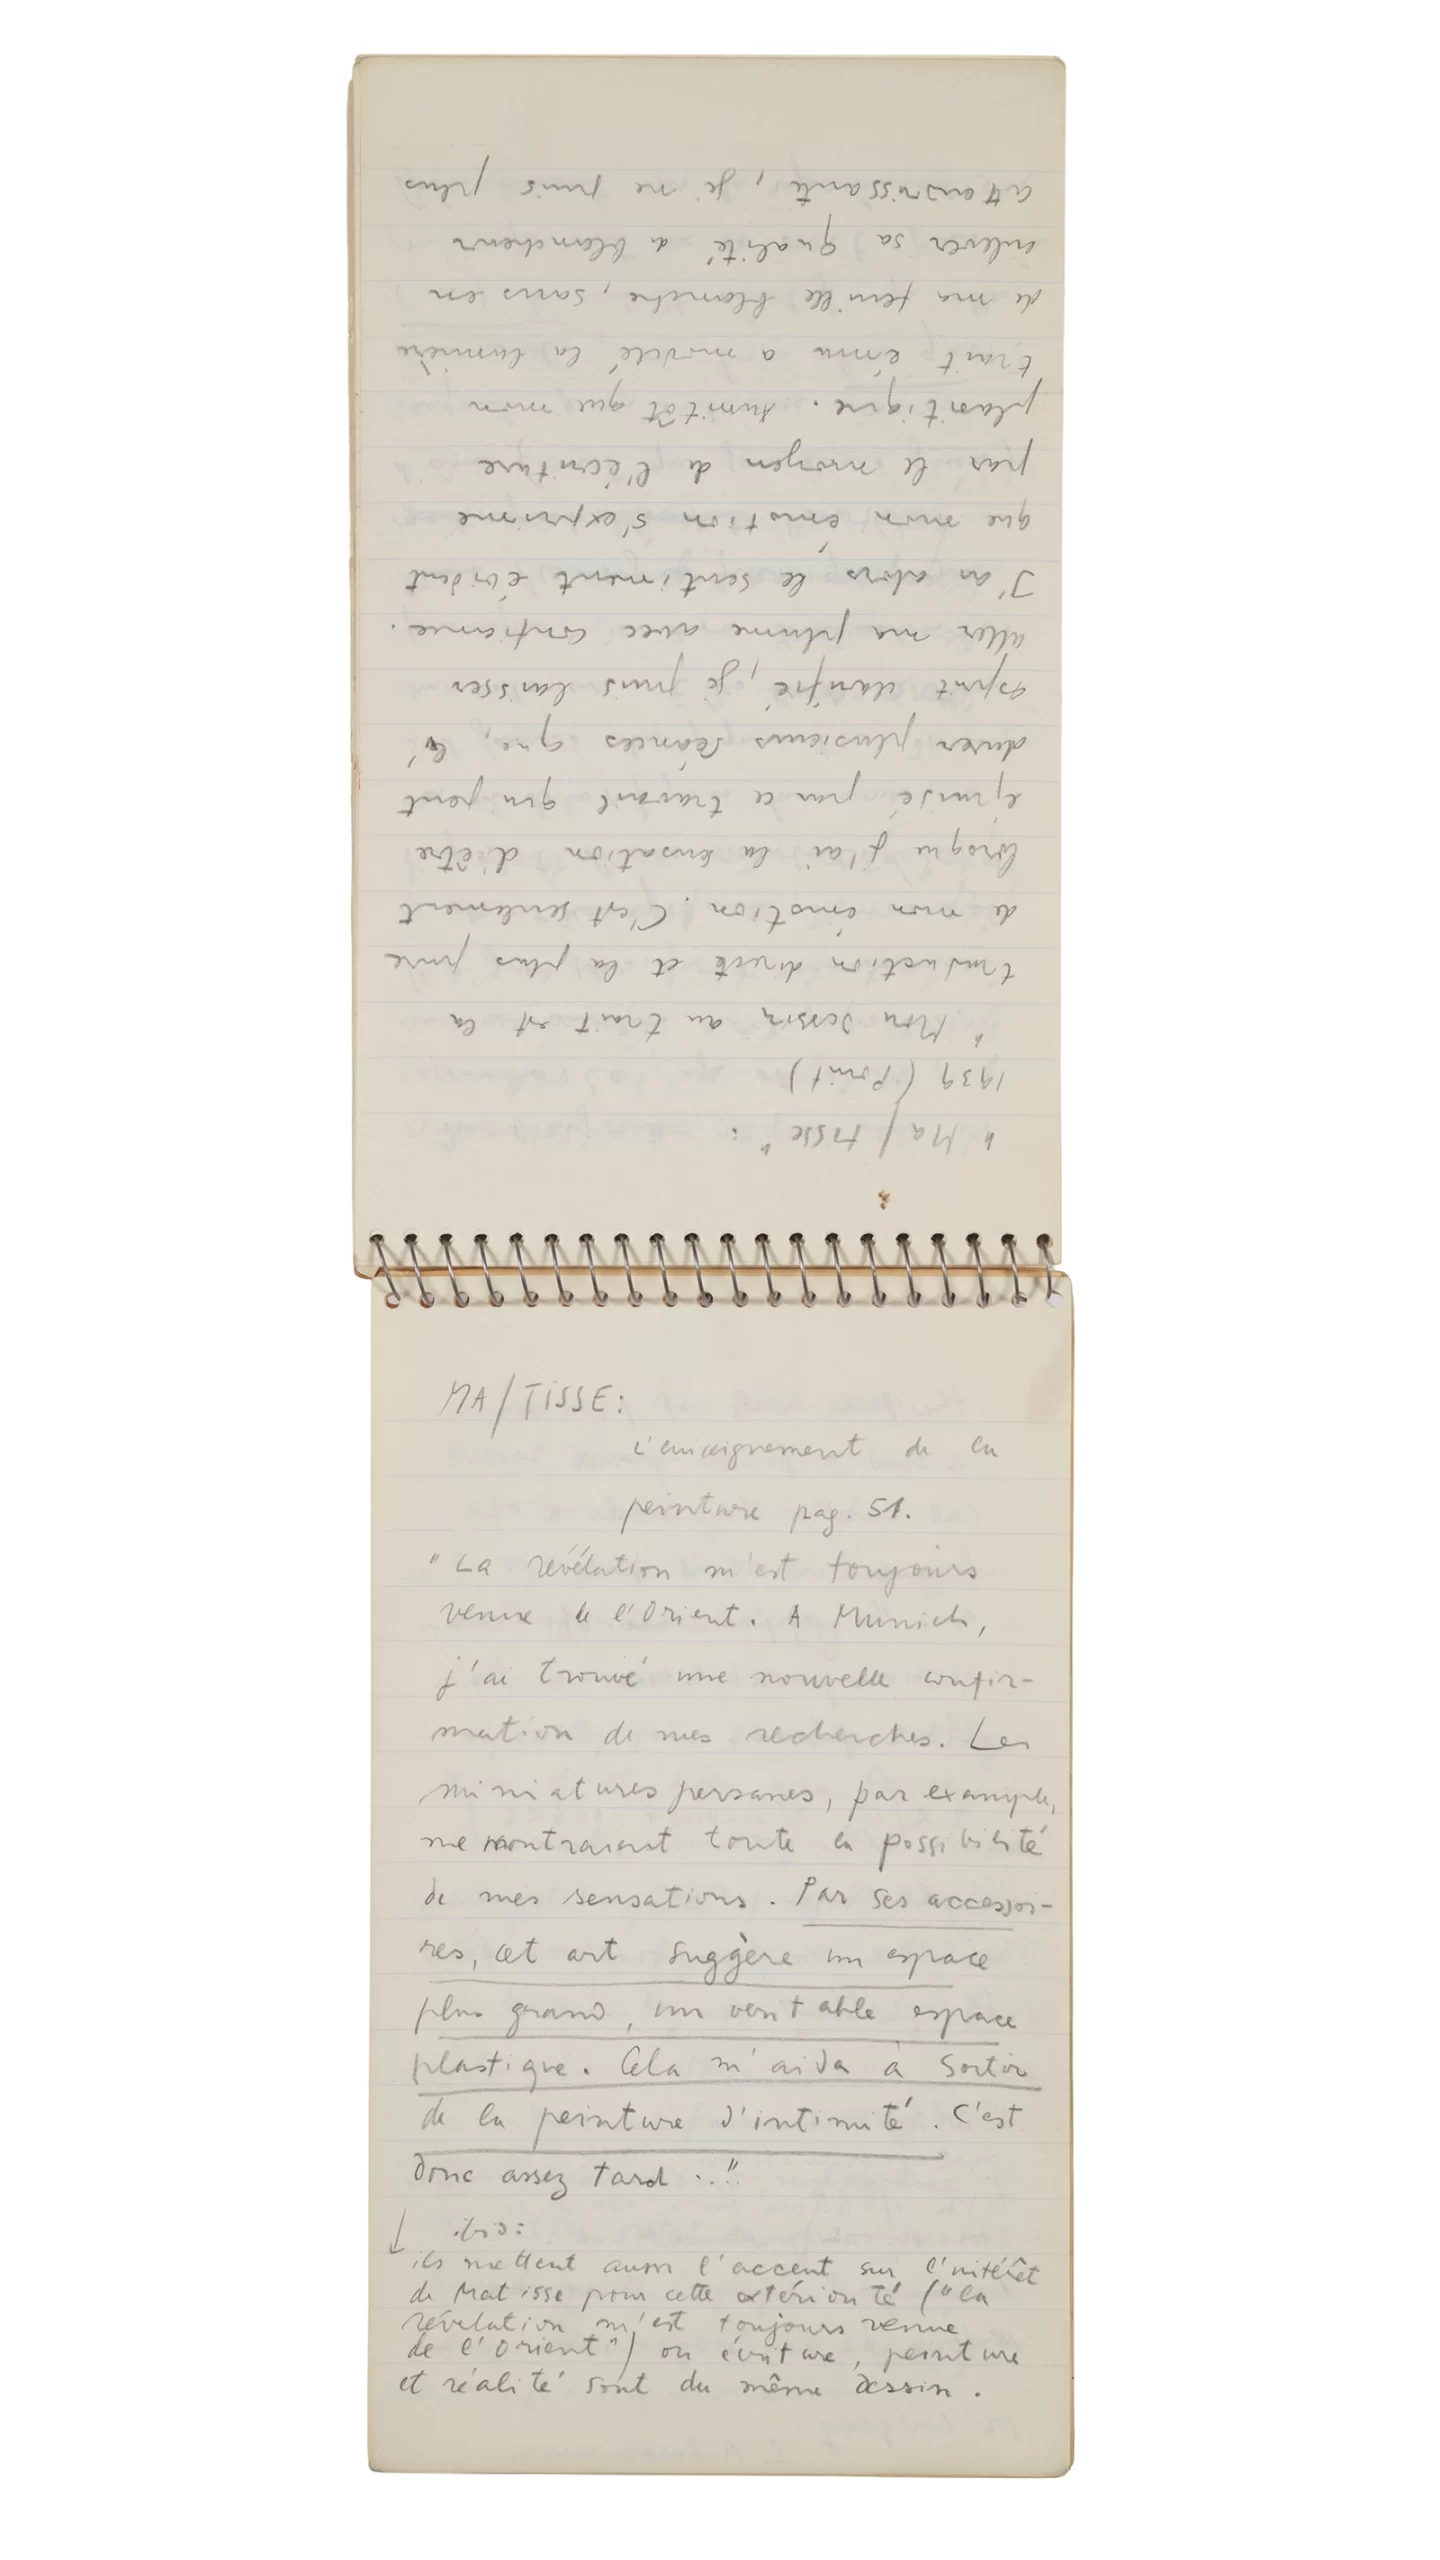 "Ma/tisse":
1939 (Point)
"Mon dessin au trait est la
traduction directe et la plus pure
de mon émotion. C'est seulement
lorsque j'ai la sensation d'être
épuisé par ce travail qui peut
durer plusieurs séances que, l'
esprit clarifié, je puis laisser
aller ma plume avec confiance.
J'ai alors le sentiment évident
que mon émotion s'exprime
par le moyen de l'écriture
plastique. Aussitôt que mon
trait ému a modelé la lumière
de ma feuille blanche, sans en
enlever sa qualité de blancheur
attendrissante, je ne puis plus
MA/TISSE:
L'enseignement de la
peinture pag. 51.
"La révélation m'est toujours
venue de l'Orient. A Munich,
j'ai trouvé une nouvelle confir-
mation de mes recherches. Les
miniatures persanes, par example,
me montraient toute la possibilité
de mes sensations. Par ses accessoi-
res, cet art suggère un espace
plus grand, un veritable espace
plastique. Cela m'aida à sortir
de la peinture d'intimité. C'est
donc assez tard ..."
↓ ibid:
ils mettent aussi l'accent sur l'intérêt
de Matisse pour cette extériorité ("la
révélation m'est toujours venue
de l'Orient") où écriture, peinture
et réalité sont du même dessin.